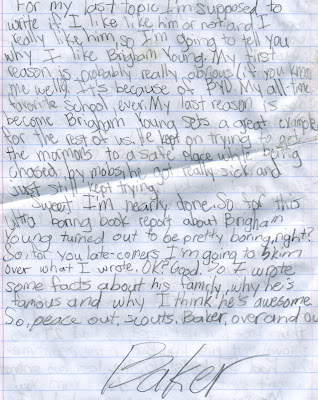 For my last topic I'm supposed to
write if I like like him or not and I
really like him so I'm going to tell you
why I like Brigham Young. My first
reason is probably really obvious (if you know
me well). It's because of BYU. My all-time
favorite school, ever. My last reason is
become Brigham Young sets a great example
for the rest of us. He kept on trying to get
the mormons to a safe place while being
chased by mobs, he got really sick and
just still kept trying.
Sweet I'm nearly done. So for this
ultra boring book report about Brigham
Young turned out to be pretty boring, right?
So, for you late-comers I'm going to skim
over what I wrote. OK? Good. So I wrote
some facts about his family, why he's
famous and why I think he's awesome.
So, peace out, scouts. Baker, over and ou
Baker